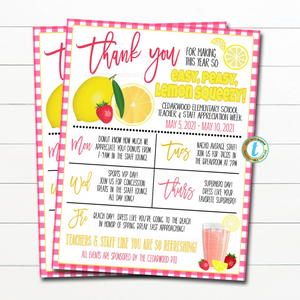 Thank you
FOR MAKING
THIS YEAR SO
EASY, PEASY,
LEMON SQUEEZY!
CEDARWOOD ELEMENTARY SCHOOL
TEACHER & STAFF APPRECIATION WEEK
MAY 5, 2021 - MAY 10, 2021
Mon
DONUT KNOW HOW MUCH WE
APPRECIATE YOU! DONUTS FROM
7-9AM IN THE STAFF LOUNGE
Tues
NACHO AVERAGE STAFF!
JOIN US FOR TACOS IN
THE BREAKROOM AT 2PM
Wed
SPORTS VIP DAY!
JOIN US FOR CONCESSION
TREATS IN THE STAFF
LOUNGE ALL DAY
Thurs
SUPERHERO DAY!
DRESS LIKE YOUR
FAVORITE SUPERHERO
Fri
BEACH DAY! DRESS LIKE YOU'RE GOING TO THE BEACH
IN HONOR OF SPRING BREAK FAST APPROACHING!
TEACHERS & STAFF LIKE YOU ARE SO REFRESHING!
ALL EVENTS ARE SPONSORED BY THE CEDARWOOD PTO